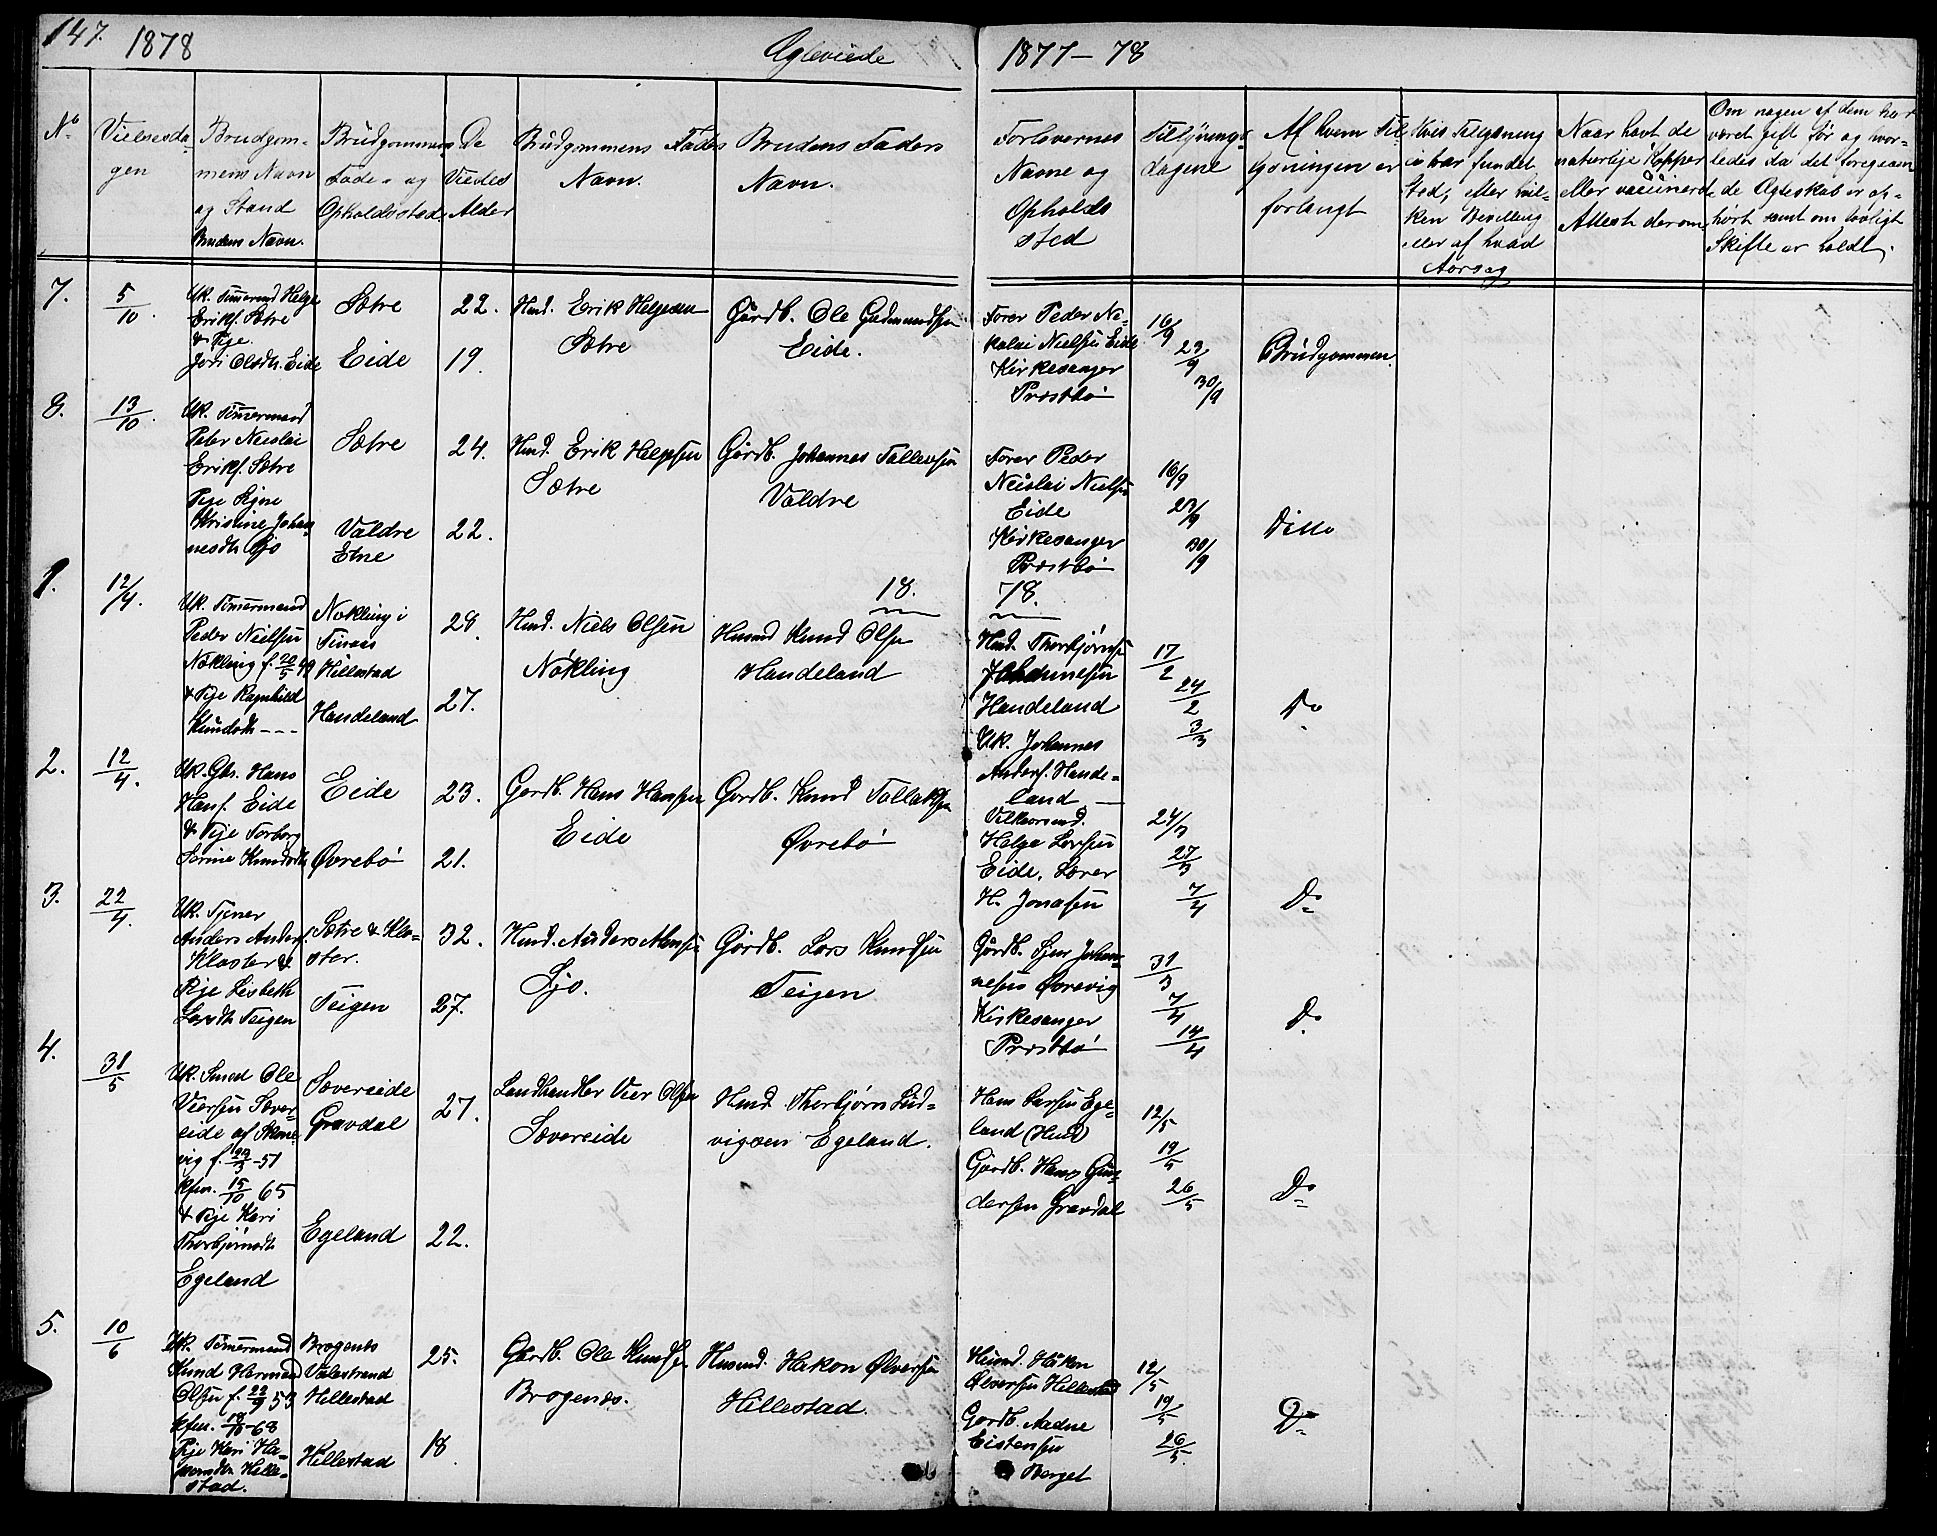 147.
1878
Ægteviede
1877-78
No
Vielsesda-
gen
Brudgom-
mens Navn
og Stand
Brudens Navn.
Brudgommens
Føde- og
Opholdssted
De
Viedes
Alder
Brudgommens Faders
Navn.
Brudens Faders
Navn.
Forlovernes
Navne og
Opholds
sted
Tillysnings-
dagene
Af hvem Til-
lysningen er
forlangt
Hvis Tillysning
ei har fundet
Sted, efter hvil-
ken Bevilling
eller af hvad
Aarsag
Naar havt de
naturlige Kopper
eller vaccineret
Attest derom
Om nogen af dem har
været gift før og hvor-
ledes da det foregaaen
de Ægteskab er op-
hørt samt om lovligt
Skifte er holdt.
7.
5/10
Uk. Tømermand Helge
Eriks. Sætre
& Pige
Jori Olsdtr. Eide
Sætre
Eide
22.
19.
Husmd. Erik Helgesen
Sætre
Gårdb. Ole Gudmundsen
Eide.
Forer Peder Ni-
kolai Nielsen Eide
Kirkesanger
Præstbø
16/9
23/9
30/9
Brudgommen
8.
13/10.
Uk. Tømermand
Peter Nicolai
Eriks. Sætre
Pige
Kristine Johan-
nesdtr.
Sætre
Valdre
Etne
24.
22.
Husmd. Erik Helgesen
Sætre
Gårdb. Johannes Tollevsen
Valdre
Forer Peder
Nicolai Nielsen
Eide
Kirkesanger
Præstbø
16/9
23/9
30/9
Ditto
18.
78.
1.
12/4.
Uk. Tømermand
Peder Nielsen
Nökling f. 20/5 49
& Pige Ragnhild
Knudsdtr. ---
Nökling i
Finaas
Hillestad
Handeland
28.
27.
Husmd. Niels Olsen
Nökling
Husmd Knud Olsen
Handeland
Husmd. Thorbjørn
Johannesen
Handeland
Uk. Johannes
Anders. Hande-
land
17/2
24/2
3/3
Do
2.
12/4.
Uk. Gbs. Hans
Hans. Eide
& Pige Torborg
Serine Knudsdtr.
Eide
Øvrebø
23.
21.
Gårdb. Hans Hansen
Eide
Gårdb. Knud Tollaksen
Øvrebø
Helge Larsen
Eide. Lærer
H. Jonasen
24/3
27/3
7/4
Do
3.
22/4.
Uk. Tjener
Anders Anders.
Kloster &
Pige Lisbeth
Larsdtr. Teigen
Sætre & Klo-
ster.
Teigen
32.
27.
Husmd. Anders Monsen
Sjo.
Gårdb. Lars Knudsen
Teigen
Gårdb. Sjur Johan-
nesen Øvrevig
Kirkesanger
Præstbø
31/3
7/4
14/4
Do
4.
31/5
Uk. Smed Ole
Viersen Sæver-
eide af Skone-
vig f. 29/3-51
kfm. 15/10 65
& Pige Kari
Thorbjørnsdtr.
Egeland
Sævereide
Gravdal
Egeland
27.
22.
Landhandler Vier Olsen
Sævereide
Husmd. Thorbjørn Lud-
vigsen Egeland.
Hans Larsen Ege-
land (Husmd)
Gårdb. Hans Gun-
dersen Gravdal
12/5
19/5
26/5
Do
5.
10/6
Uk. Tømermand
Knud Herman
Olsen f. 22/9 53
kfm. 18/10-68
Pige Kari Ha-
konsdtr. Hille-
stad.
Brogenes
Valestrand
Hillestad
Hillestad
25.
18.
Gårdb. Ole Knudsen
Brogenes.
Husmd. Hakon Ølversen
Hillestad.
Husmd. Håkon
Ølversen Hillestad
Gårdb. Aadne
Eistensen
Berget
12/5
19/5
26/5
Do